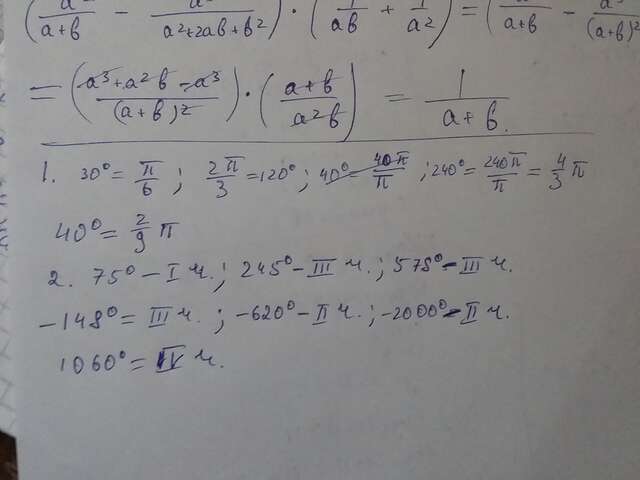 (a/(a+b) - a/(a²+2ab+b²)) · (1/ab + 1/a²) = (a/(a+b) - a/(a+b)²
= ((a³+a²b-a³)/(a+b)²) · ((a+b)/a²b) = 1/(a+b).
1. 30° = π/6 ; 2π/3 = 120° ; 40° = 40π/π ; 240° = 240π/π = 4/3 π
40° = 2/9 π
2. 75° - I ч.; 245° - III ч.; 575° - III ч.
-148° = III ч.; -620° - II ч.; -2000° - II ч.
1060° = IV ч.